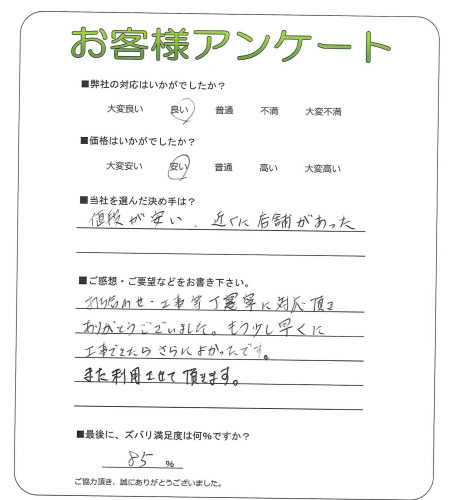 お客様アンケート
■弊社の対応はいかがでしたか?
大変良い 良い 普通 不満 大変不満
■価格はいかがでしたか?
大変安い 安い 普通 高い 大変高い
■当社を選んだ決め手は?
値段が安い、近くに店舗があった
■ご感想・ご要望などをお書き下さい。
打ち合わせ・工事等丁寧に対応頂き
ありがとうございました。もう少し早くに
工事できたらさらによかったです。
また利用させて頂きます。
■最後に、ズバリ満足度は何%ですか?
85 %
ご協力頂き、誠にありがとうございました。